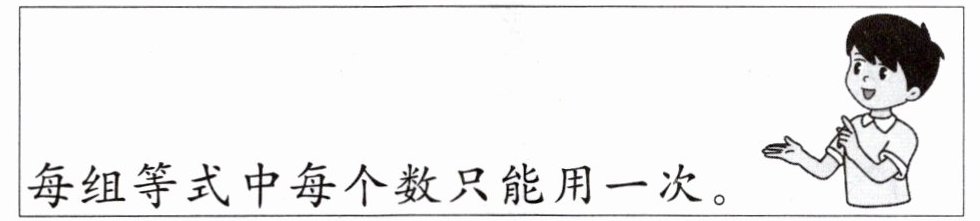 每组等式中每个数只能用一次。